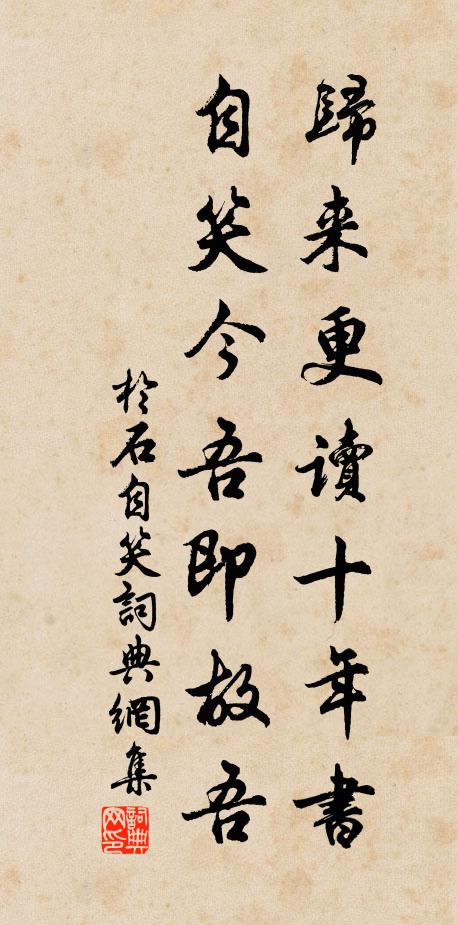 歸来更讀十年書
自笑今吾即故吾
於石自笑詞典網集
詞典網印